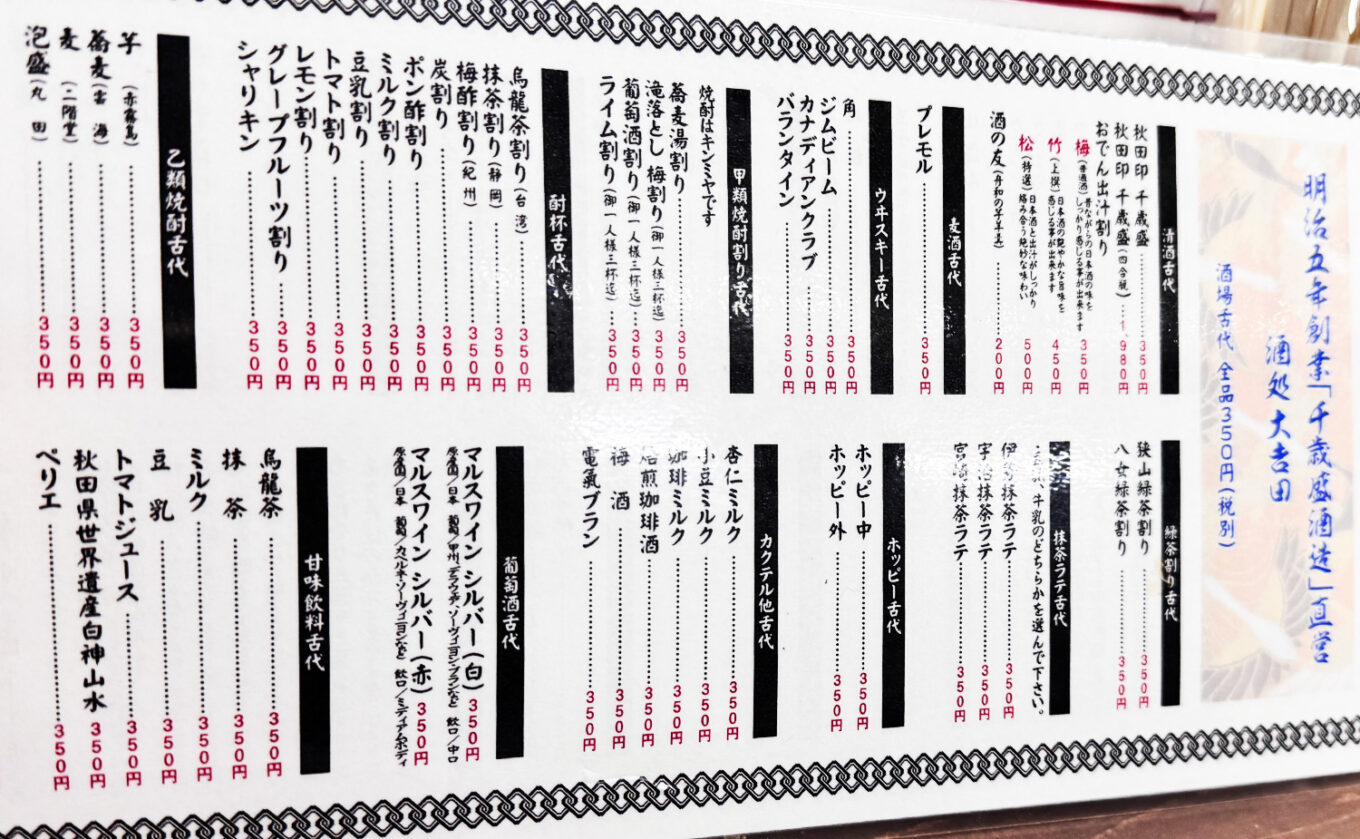 明治五年創業「千歳盛酒造」直営
酒処 大吉田
酒場舌代 全品350円(税別)
清酒舌代
秋田印 千歳盛 350円
秋田印 千歳盛(四合瓶) 1,980円
おでん出汁割り
梅(普通酒)昔ながらの日本酒の味をしっかり感じる事が出来ます 350円
竹(上撰)日本酒の艶やかな旨味を感じる事が出来ます 450円
松(特選)日本酒と出汁がしっかり絡み合う絶妙な味わい 500円
酒の友(丹和の羊羊羹) 200円
麦酒舌代
プレモル 350円
ウヰスキー舌代
角 350円
ジムビーム 350円
カナディアンクラブ 350円
バランタイン 350円
甲類焼酎割り舌代
焼酎はキンミヤです
蕎麦湯割り 350円
滝落とし梅割り(御一人様三杯迄) 350円
葡萄酒割り(御一人様三杯迄) 350円
ライム割り(御一人様三杯迄) 350円
酎杯舌代
烏龍茶割り(台湾) 350円
抹茶割り(静岡) 350円
梅酢割り(紀州) 350円
炭割り 350円
ポン酢割り 350円
ミルク割り 350円
豆乳割り 350円
トマト割り 350円
レモン割り 350円
グレープフルーツ割り 350円
シャリキン 350円
乙類焼酎舌代
芋(赤霧島) 350円
蕎麦(雲海) 350円
麦(二階堂) 350円
泡盛(丸田) 350円
緑茶割り舌代
狭山緑茶割り 350円
八女緑茶割り 350円
抹茶ラテ舌代
牛乳のどちらかを選んで下さい。
伊勢抹茶ラテ 350円
宇治抹茶ラテ 350円
宮崎抹茶ラテ 350円
ホッピー舌代
ホッピー中 350円
ホッピー外 350円
カクテル他舌代
杏仁ミルク 350円
小豆ミルク 350円
珈琲ミルク 350円
焙煎珈琲酒 350円
梅酒 350円
電氣ブラン 350円
葡萄酒舌代
マルスワイン シルバー(白) 350円
原産国/日本 葡萄/甲州、デラウェア、ソーヴィニヨン・ブランなど 飲口/中口
マルスワイン シルバー(赤) 350円
原産国/日本 葡萄/カベルネ・ソーヴィニヨンなど 飲口/ミディアムボディ
甘味飲料舌代
烏龍茶 350円
抹茶 350円
ミルク 350円
豆乳 350円
トマトジュース 350円
秋田県世界遺産白神山水 350円
ペリエ 350円